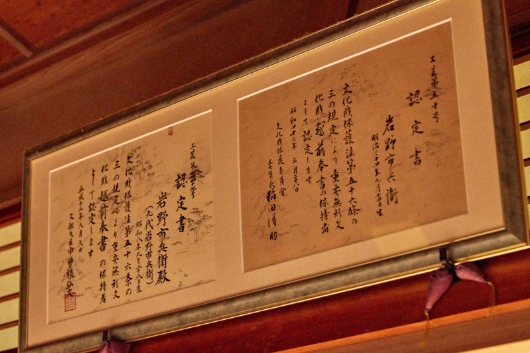 認定書
岩野市兵衛
文化財保護法第五十六条の
三の規定により重要無形文
化財越前奉書の保持者
として認定します
昭和四十三年
文化財保護委員会
稲田清助
認定書
岩野市兵衛殿
(九代岩野市兵衛)
文化財保護法第五十六条の
三の規定により重要無形文
化財越前奉書の保持者
として認定します